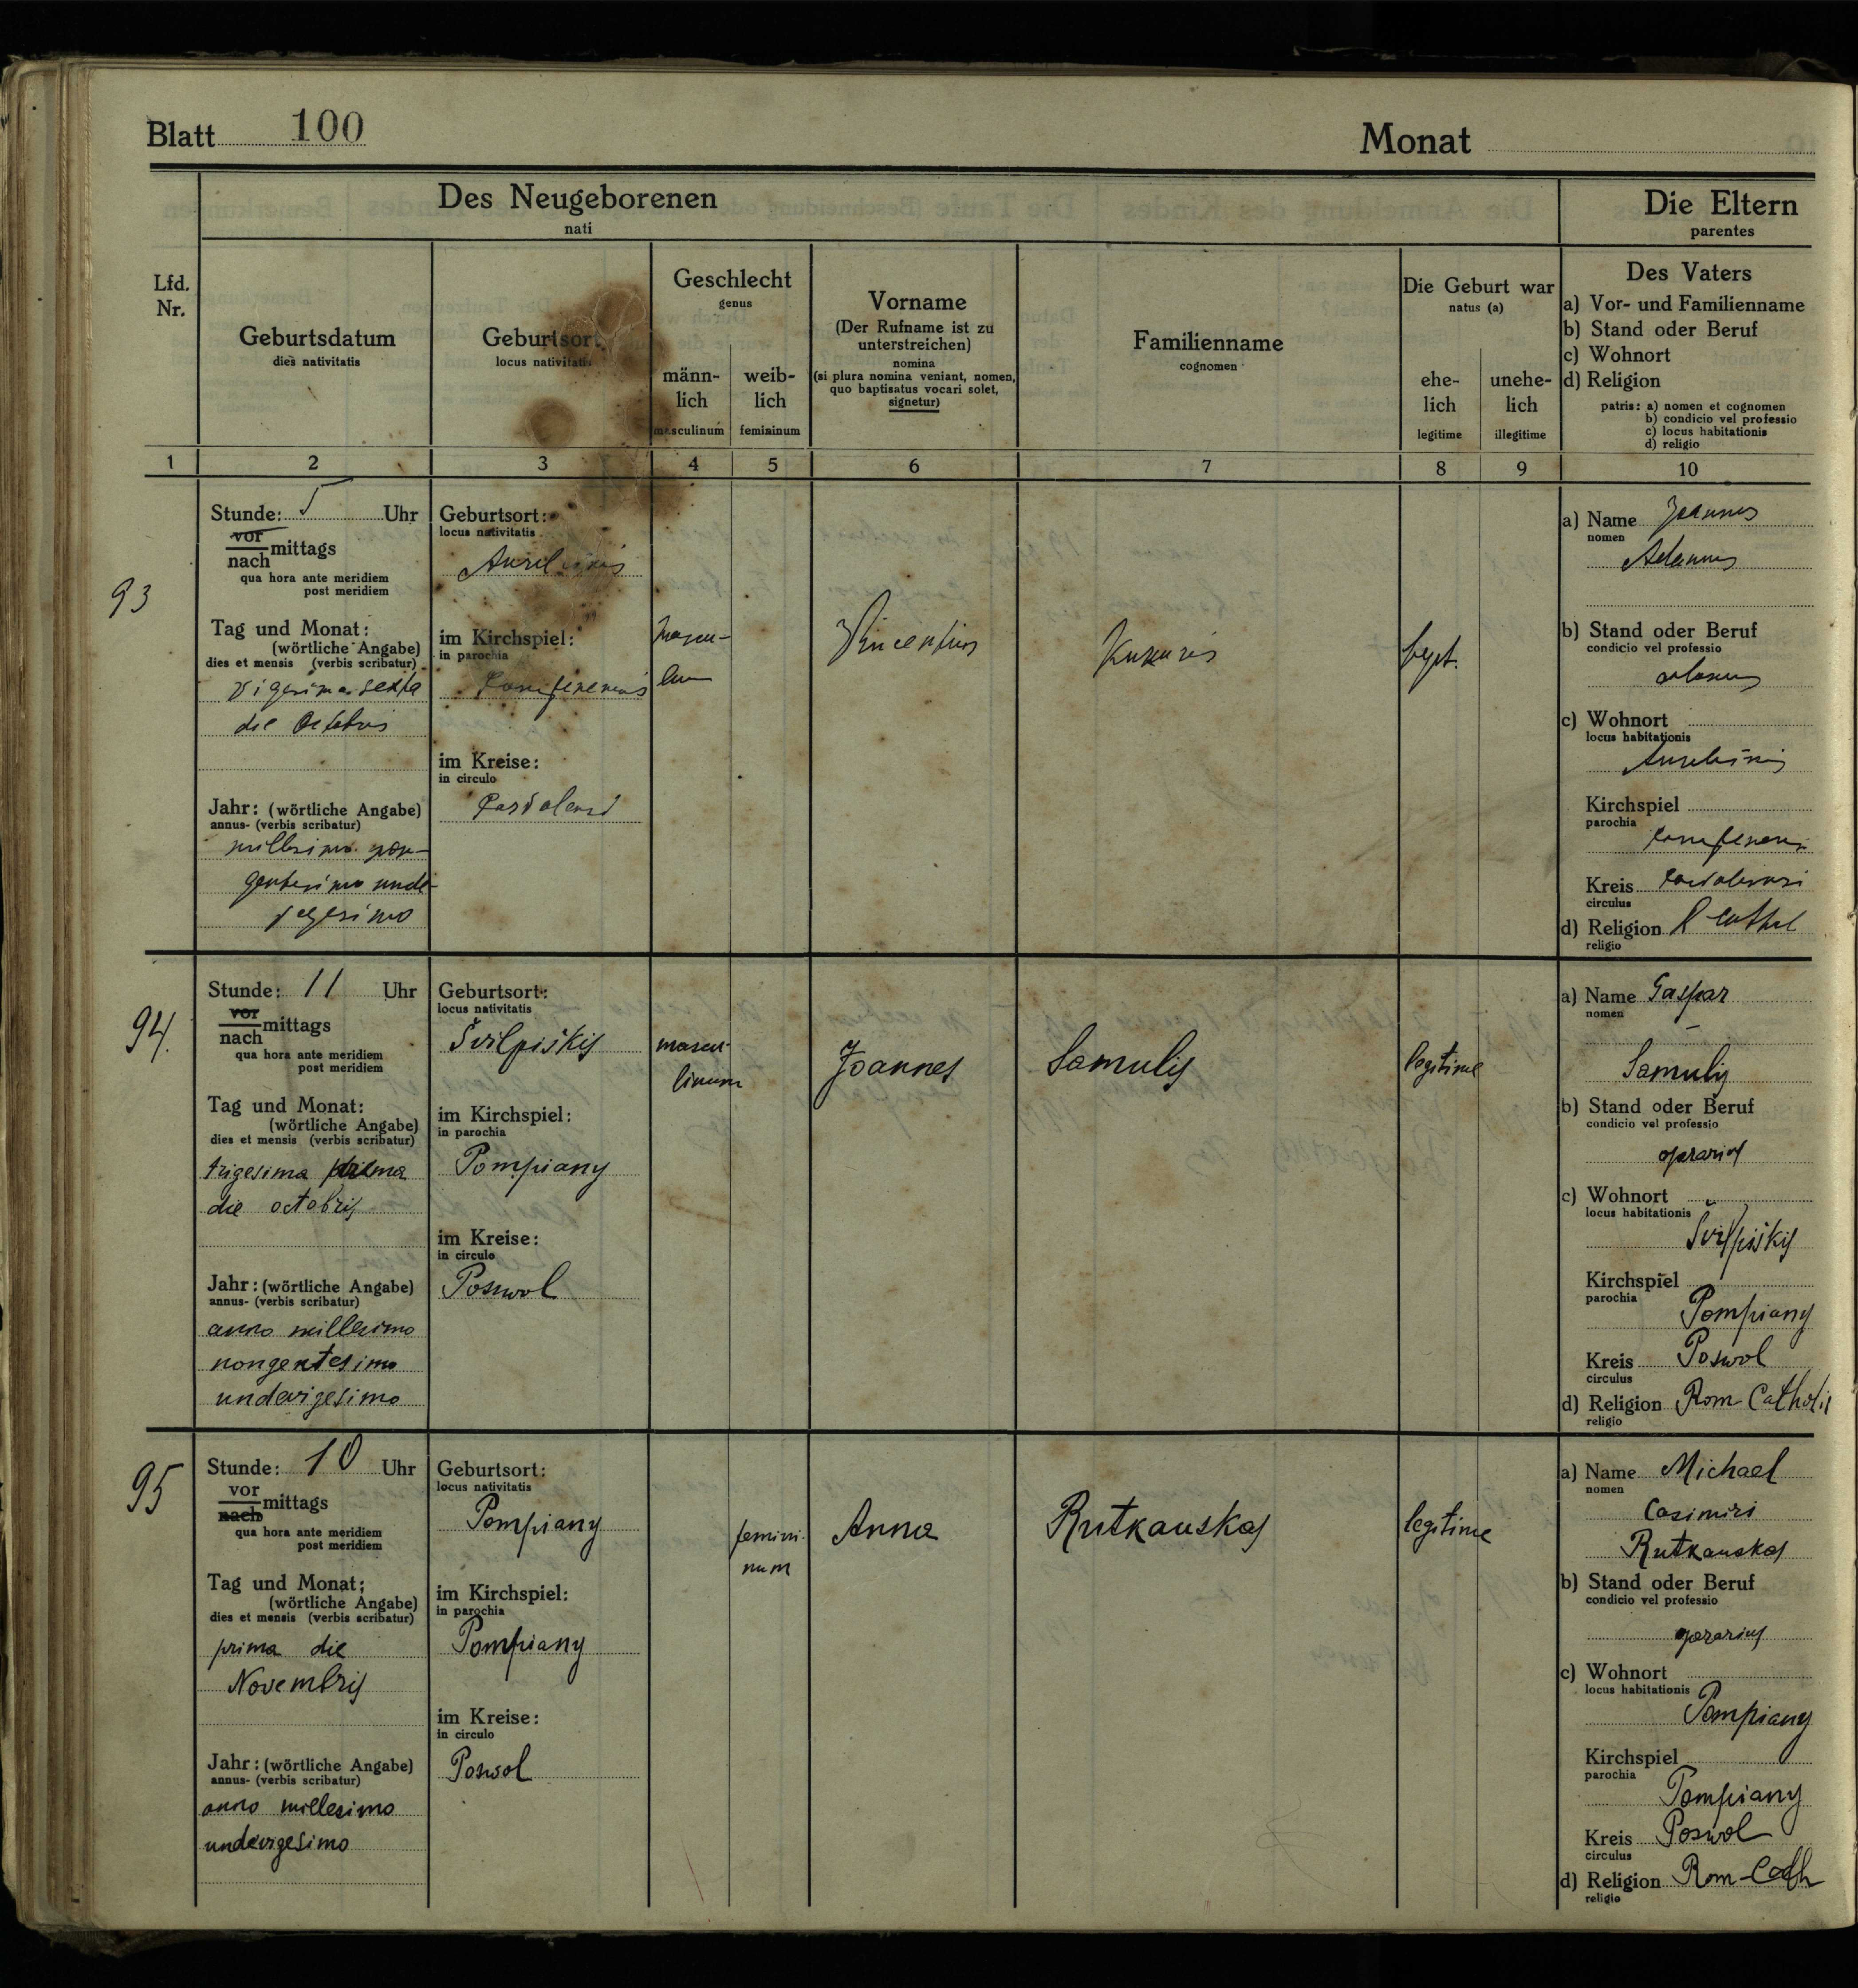 Blatt 100
Monat
Des Neugeborenen
nati
Die Eltern
parentes
Lfd.
Nr.
Geburtsdatum
dies nativitatis
Geburtsort
locus nativitatis
Geschlecht
genus
männ-
lich
masculinum
weib-
lich
femininum
Vorname
(Der Rufname ist zu
unterstreichen)
nomina
(si plura nomina veniant, nomen,
quo baptisatus vocari solet,
signetur)
Familienname
cognomen
Die Geburt war
natus (a)
ehe-
lich
legitime
unehe-
lich
illegitime
Des Vaters
a) Vor- und Familienname
b) Stand oder Beruf
c) Wohnort
d) Religion
patris: a) nomen et cognomen
b) condicio vel professio
c) locus habitationis
d) religio
1 2 3 4 5 6 7 8 9 10
93
Stunde: 5 Uhr
vor
nach mittags
qua hora ante meridiem
post meridiem
Tag und Monat:
(wörtliche Angabe)
dies et mensis (verbis scribatur)
vigesima sexta
die Octobris
Jahr: (wörtliche Angabe)
annus- (verbis scribatur)
millesimo non-
gentesimo unde-
vegesimo
Geburtsort:
locus nativitatis
im Kirchspiel:
in parochia
im Kreise:
in circulo
mascu-
Vincentius
a) Name Joannes
nomen
b) Stand oder Beruf
condicio vel professio
c) Wohnort
locus habitationis
Kirchspiel
parochia
Kreis
circulus
d) Religion R Cathol
religio
94.
Stunde: 11 Uhr
vor
nach mittags
qua hora ante meridiem
post meridiem
Tag und Monat:
(wörtliche Angabe)
dies et mensis (verbis scribatur)
trigesima prima
die octobris
Jahr: (wörtliche Angabe)
annus- (verbis scribatur)
anno millesimo
nongentesimo
undevigesimo
Geburtsort:
locus nativitatis
Švilpiškis
im Kirchspiel:
in parochia
Pompiany
im Kreise:
in circulo
Poswol
mascu-
linum
Joannes
Samulis
legitime
a) Name Gaspar
nomen
Samulis
b) Stand oder Beruf
condicio vel professio
operarius
c) Wohnort
locus habitationis
Švilpiškis
Kirchspiel
parochia
Pompiany
Kreis Poswol
circulus
d) Religion Rom-Catholic
religio
95
Stunde: 10 Uhr
vor
nach mittags
qua hora ante meridiem
post meridiem
Tag und Monat:
(wörtliche Angabe)
dies et mensis (verbis scribatur)
prima die
Novembris
Jahr: (wörtliche Angabe)
annus- (verbis scribatur)
anno millesimo
undevigesimo
Geburtsort:
locus nativitatis
Pompiany
im Kirchspiel:
in parochia
Pompiany
im Kreise:
in circulo
Poswol
femini-
num
Anna
Rutkauskas
legitime
a) Name Michael
nomen
Casimiri
Rutkauskas
b) Stand oder Beruf
condicio vel professio
operarius
c) Wohnort
locus habitationis
Pompiany
Kirchspiel
parochia
Pompiany
Kreis Poswol
circulus
d) Religion Rom-Cath
religio